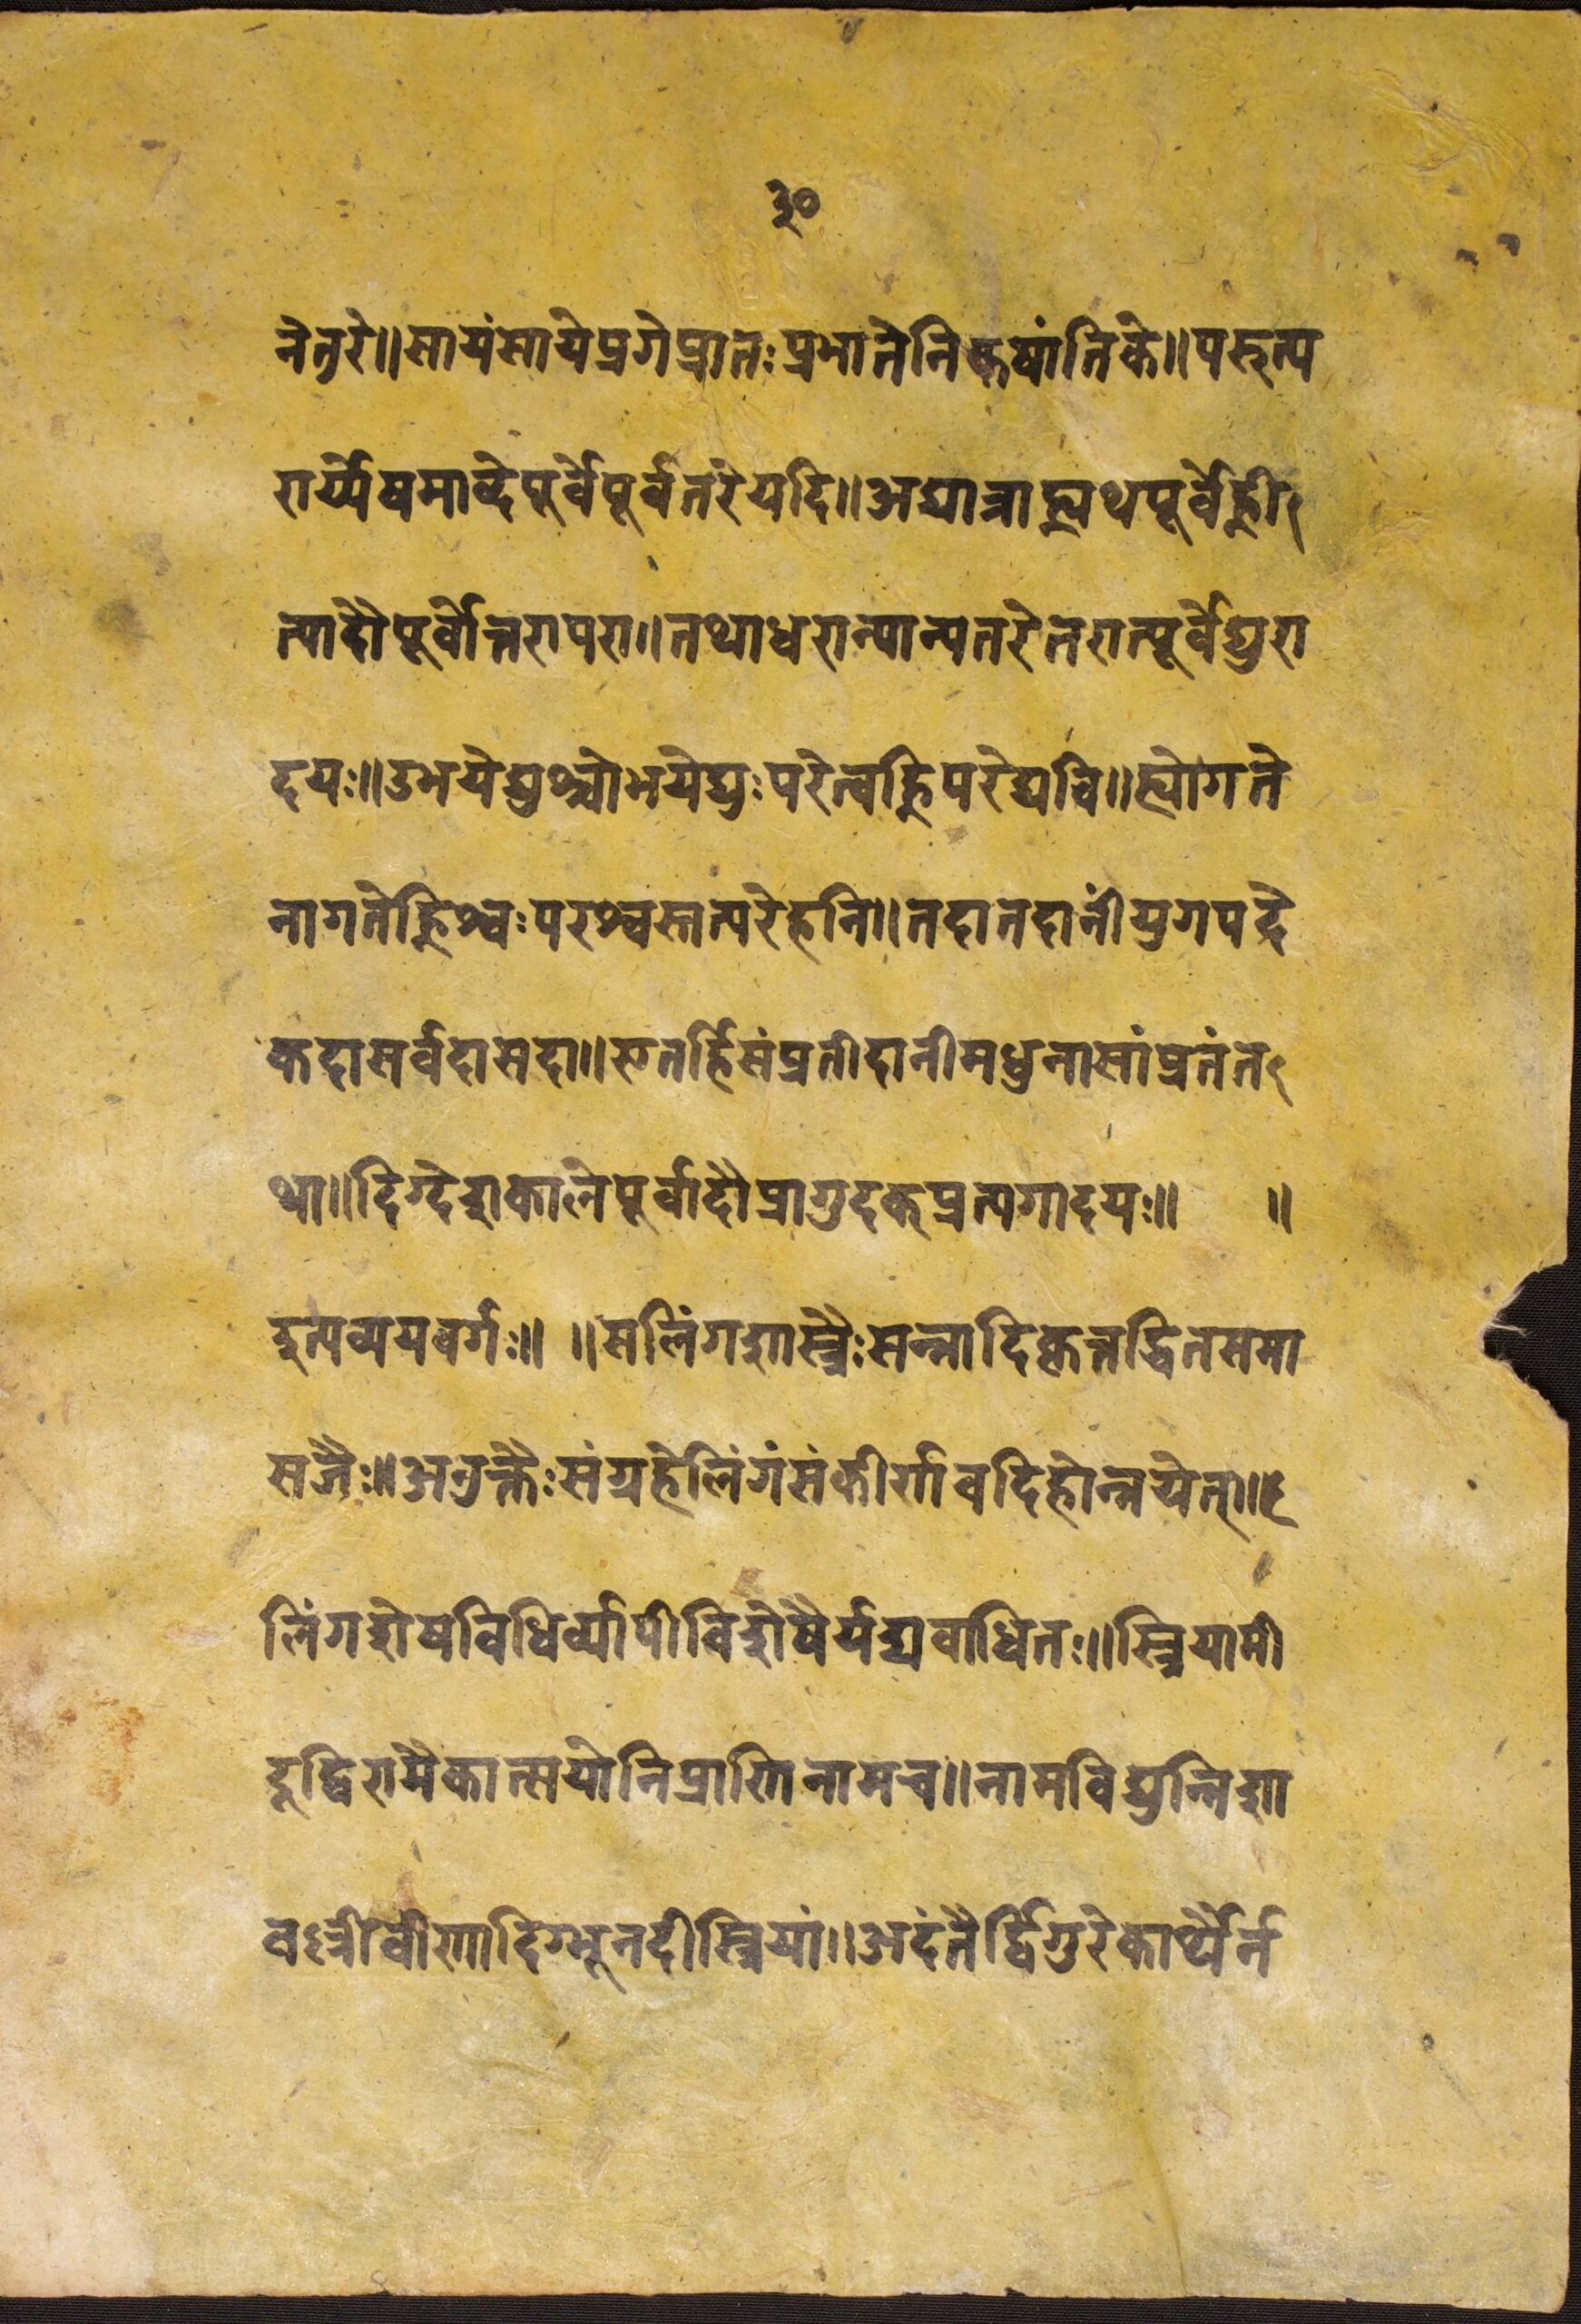 ३०
नेतरे॥सायंसायेप्रगेप्रातःप्रभातेनिकषांतिके॥परुत्प
रार्य्यैषमाव्देपूर्वेपूर्वतरेयदि॥अद्यात्राह्न्यथपूर्वेह्नी
त्यादौपूर्वोत्तरापरा॥तथाधरान्यान्यतरेतरात्पूर्वेद्युरा
दयः॥उभयेद्युश्चोभयेद्युःपरेत्वह्निपरेद्यवि॥ह्योगते
नागतेह्निश्वःपरश्वस्तात्परेहनि॥तदातदानींयुगपदे
कदासर्वदासदा॥एतर्हिसंप्रतीदानीमधुनासांप्रतंत
था॥दिग्देशकालेपूर्वादौप्रागुदक्प्रत्यगादयः॥ ॥
इत्यव्ययवर्गः॥ ॥सलिंगशास्त्रैःसन्नादिकृत्तद्धितसमा
सजैः॥अनुक्तैःसंग्रहेलिंगंसंकीर्णवदिहोन्नयेत्॥
लिंगशेषविधिर्व्यापीविशेषैर्यद्यवाधितः॥स्त्रियामी
दूद्विरामैकात्सयोनिप्राणिनामच॥नामविद्युन्निशा
वल्लीवीणादिग्भूनदीस्त्रियां॥अदंतैर्द्विगुरेकार्थ्यैर्न